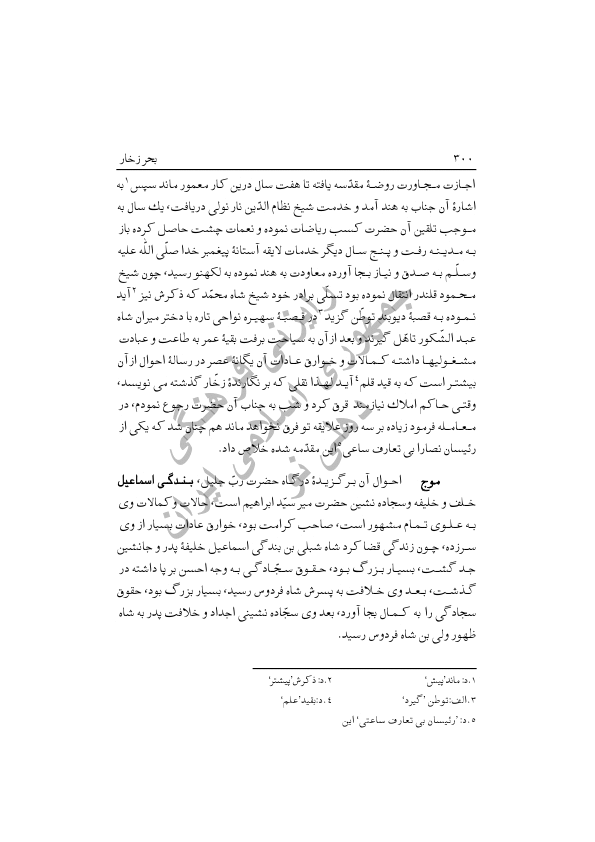 ۳۰۰ بحر زخار
اجازت مجاورت روضهٔ مقدّسه یافته تا هفت سال درین کار معمور ماند سپس۱ به
اشارهٔ آن جناب به هند آمد و خدمت شیخ نظام الدّین نارنولی دریافت، یك سال به
موجب تلقین آن حضرت کسب ریاضات نموده و نعمات چشت حاصل کرده باز
به مدینه رفت و پنج سال دیگر خدمات لایقه آستانهٔ پیغمبر خدا صلّی اللّه علیه
وسلّم به صدق و نیاز بجا آورده معاودت به هند نموده به لکهنو رسید، چون شیخ
محمود قلندر انتقال نموده بود تسلّی برادر خود شیخ شاه محمّد که ذکرش نیز۲ آید
نموده به قصبهٔ دیوبند توطّن گزید۳ در قصبهٔ سهیره نواحی تاره با دختر میران شاه
عبد الشّکور تاهّل گیرند و بعد از آن به سیاحت برفت بقیهٔ عمر به طاعت و عبادت
مشغولیها داشته کمالات و خوارق عادات آن یگانهٔ عصر در رسالهٔ احوال از آن
بیشتر است که به قید قلم۴ آید لهذا نقلی که بر نگارندهٔ زخّار گذشته می نویسد،
وقتی حاکم املاك نیازمند قرق کرد و شب به جناب آن حضرت رجوع نمودم، در
معامله فرمود زیاده بر سه روز علایقه تو قرق نخواهد ماند هم چنان شد که یکی از
رئیسان نصارا بی تعارف ساعی۵ این مقدّمه شده خلاص داد.
موج احوال آن برگزیدهٔ درگاه حضرت ربّ جلیل، بندگی اسماعیل
خلف و خلیفه وسجاده نشین حضرت میر سیّد ابراهیم است، حالات وکمالات وی
به علوی تمام مشهور است، صاحب کرامت بود، خوارق عادات بسیار از وی
سرزده، چون زندگی قضا کرد شاه شبلی بن بندگی اسماعیل خلیفهٔ پدر و جانشین
جد گشت، بسیار بزرگ بود، حقوق سجّادگی به وجه احسن بر پا داشته در
گذشت، بعد وی خلافت به پسرش شاه فردوس رسید، بسیار بزرگ بود، حقوق
سجادگی را به کمال بجا آورد، بعد وی سجّاده نشینی اجداد و خلافت پدر به شاه
ظهور ولی بن شاه فردوس رسید.
۱.د: ماند’پیش‘ ۲.د: ذکرش’پیشتر‘
۳.الف:توطن ’گیرد‘ ۴.د:بقید’علم‘
۵.د: ’رئیسان بی تعارف ساعتی‘ این